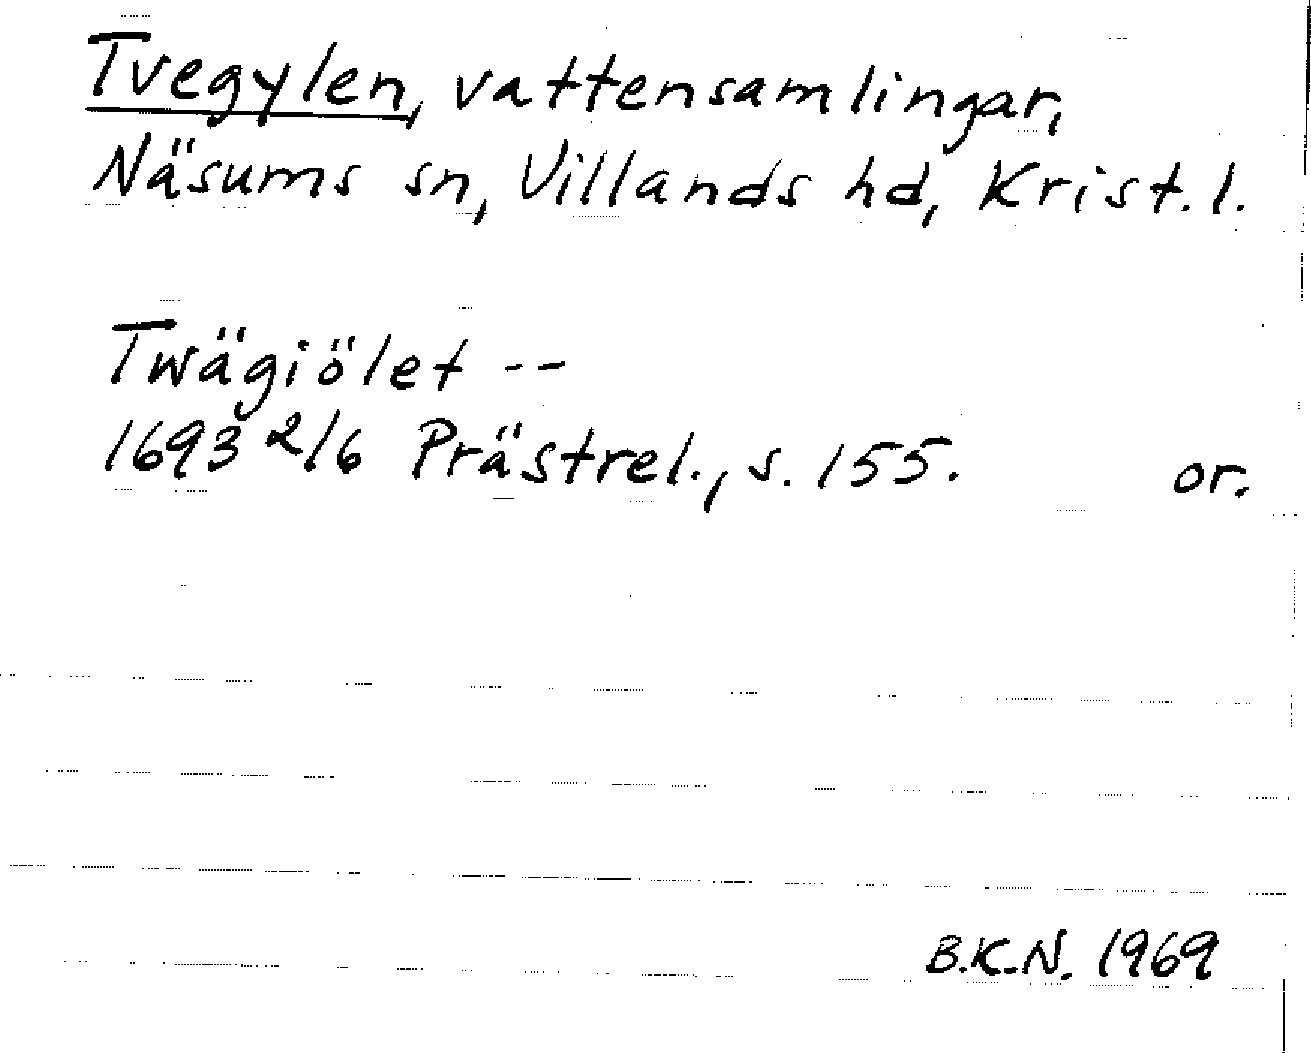 Tvegylen, vattensamlingar,
Näsums sn, Villands hd, Krist. l.
Twägiölet --
1693 2/6 Prästrel., s. 155. or.
B.K.N. 1969